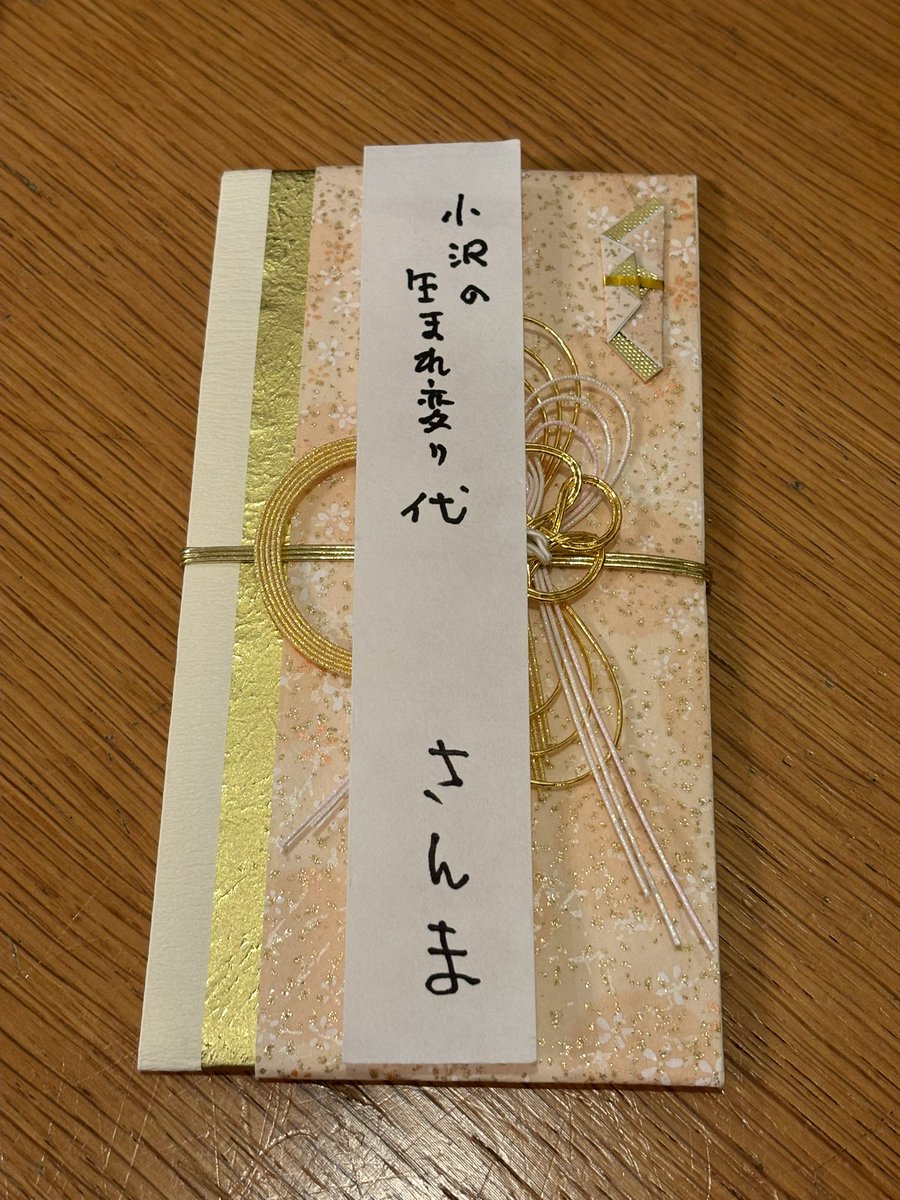 小沢の
生まれ変り代
さんま